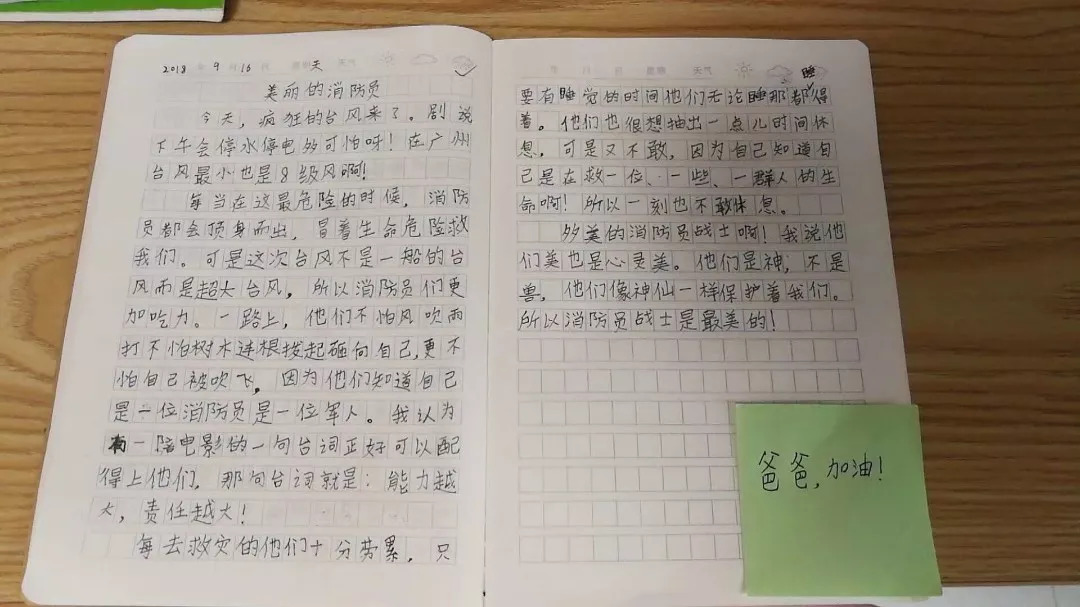 2018年9月16日 星期天 天气
美丽的消防员
今天，疯狂的台风来了。剧说
下午会停水停电多可怕呀！在广州
台风最小也是8级风啊！
每当在这最危险的时候，消防
员都会顶身而出，冒着生命危险救
我们。可是这次台风不是一般的台
风而是超大台风，所以消防员们更
加吃力。一路上，他们不怕风吹雨
打不怕树木连根拨起砸向自己，更不
怕自己被吹飞，因为他们知道自己
是一位消防员是一位军人。我认为
有一陪电影的一句台词正好可以配
得上他们，那句台词就是：能力越
大，责任越大！
每去救灾的他们十分劳累，只
年 月 日 星期 天气
睡
要有睡觉的时间他们无论睡那都得
着。他们也很想抽出一点儿时间休
息，可是又不敢，因为自己知道自
己是在救一位、一些、一群人的生
命啊！所以一刻也不敢休息。
多美的消防员战士啊！我说他
们美也是心灵美。他们是神，不是
兽，他们像神仙一样保护着我们。
所以消防员战士是最美的！
爸爸，加油！